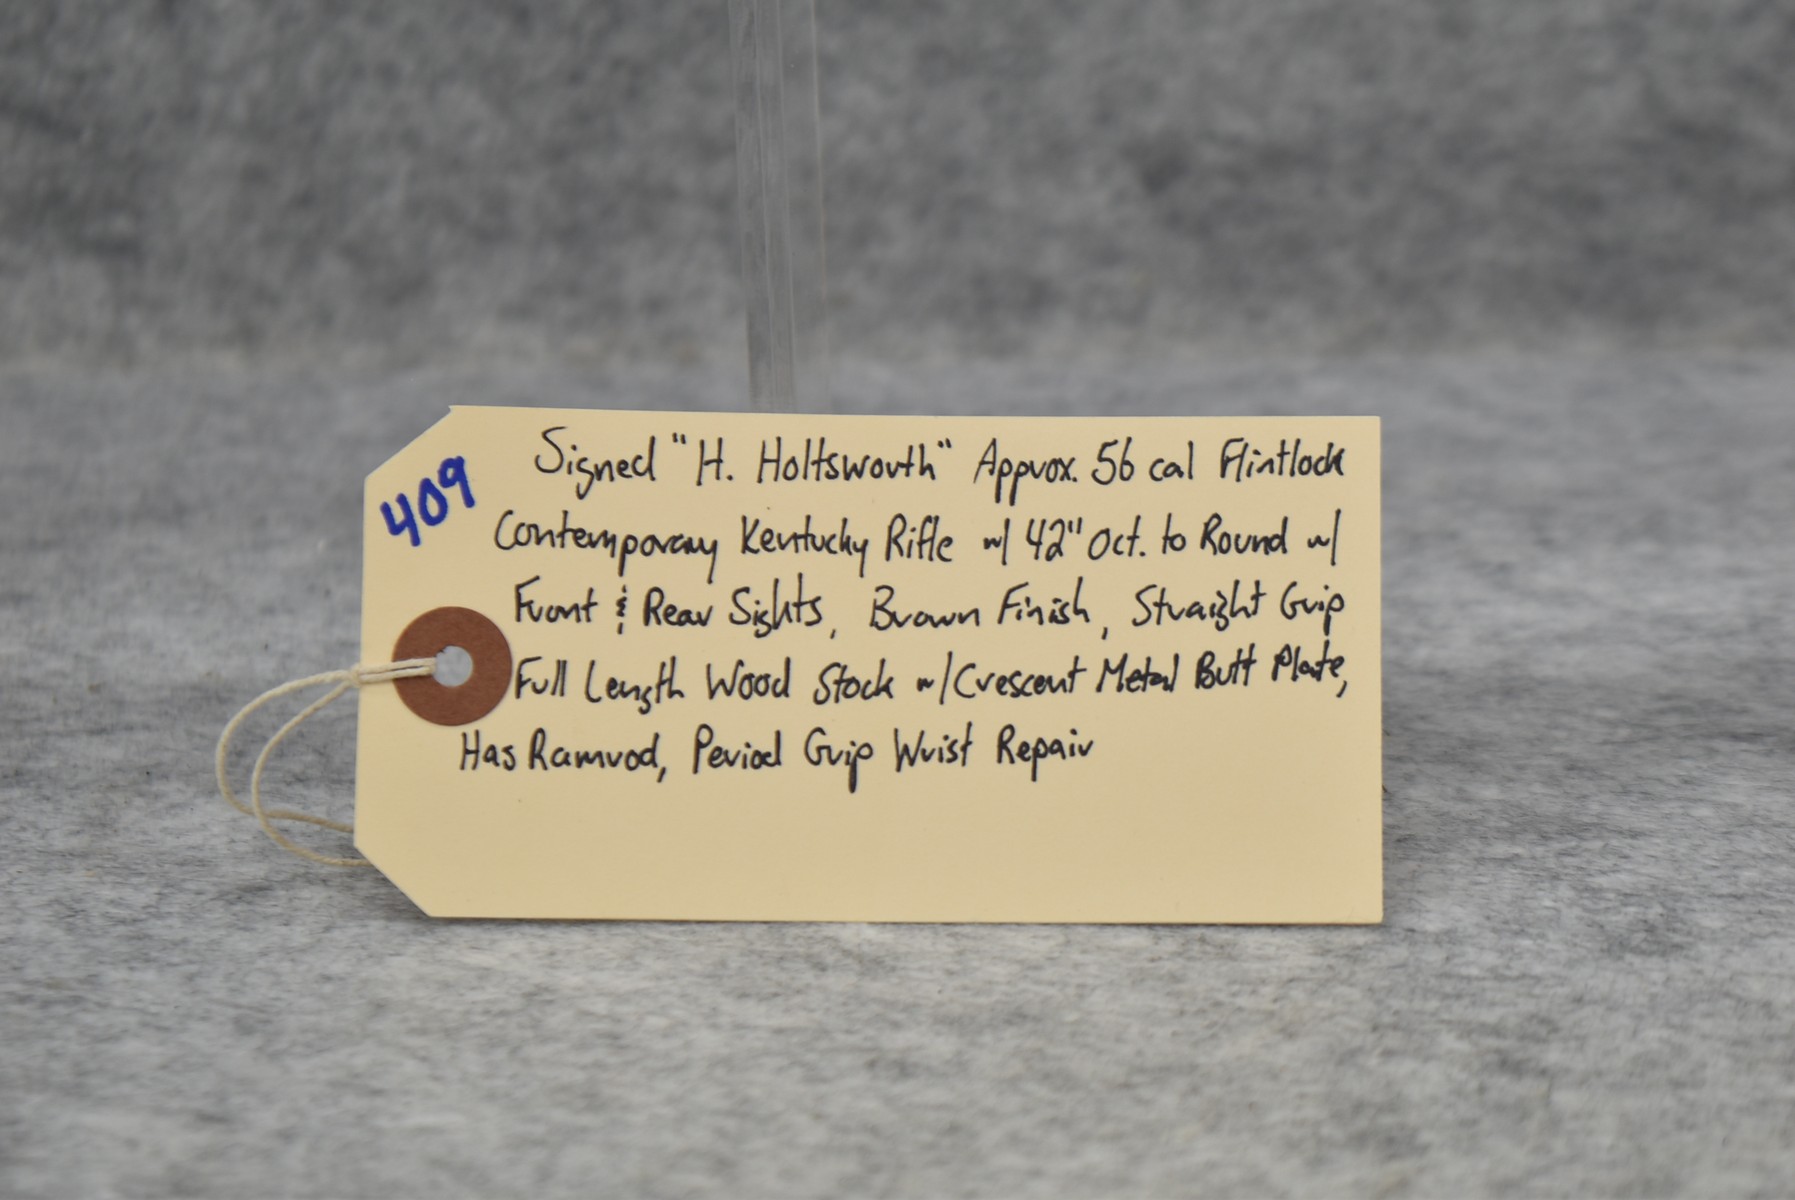 409
Signed "H. Holtsworth" Approx. 56 cal Flintlock
Contemporary Kentucky Rifle w/ 42" Oct. to Round w/
Front & Rear Sights, Brown Finish, Straight Grip
Full Length Wood Stock w/ Crescent Metal Butt Plate,
Has Ramrod, Period Grip Wrist Repair